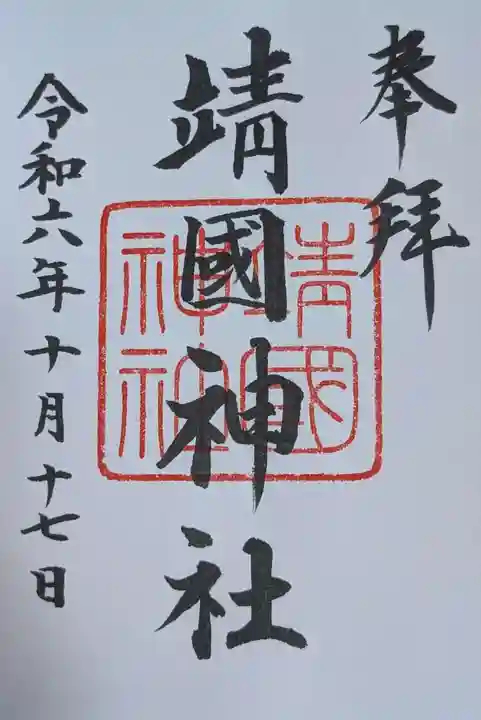 奉拝
靖國神社
靖国神社
令和六年十月十七日